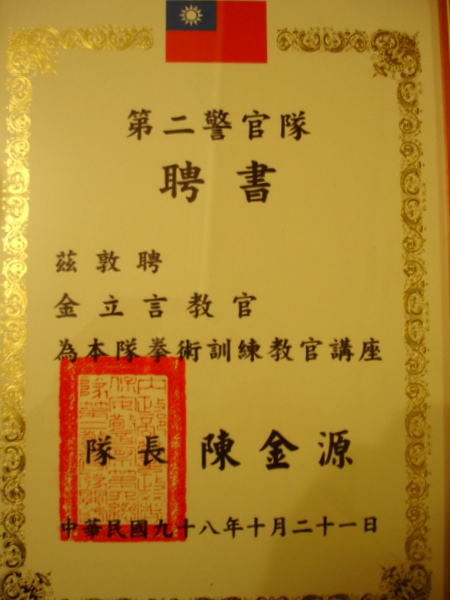 第二警官隊
聘書
茲敦聘
金立言教官
為本隊拳術訓練教官講座
隊長 陳金源
中華民國九十八年十月二十一日